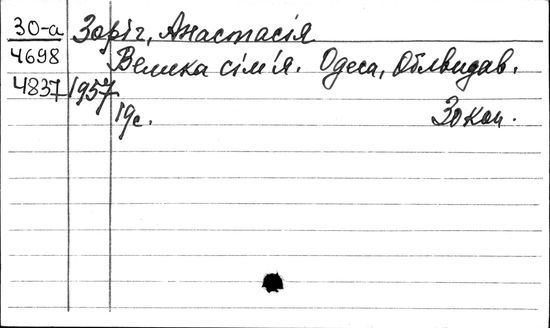 30-а Зоріг, Анастасія
4698 Велика сім'я. Одеса, Облвидав.
4837 1957.
19с. 30 коп.